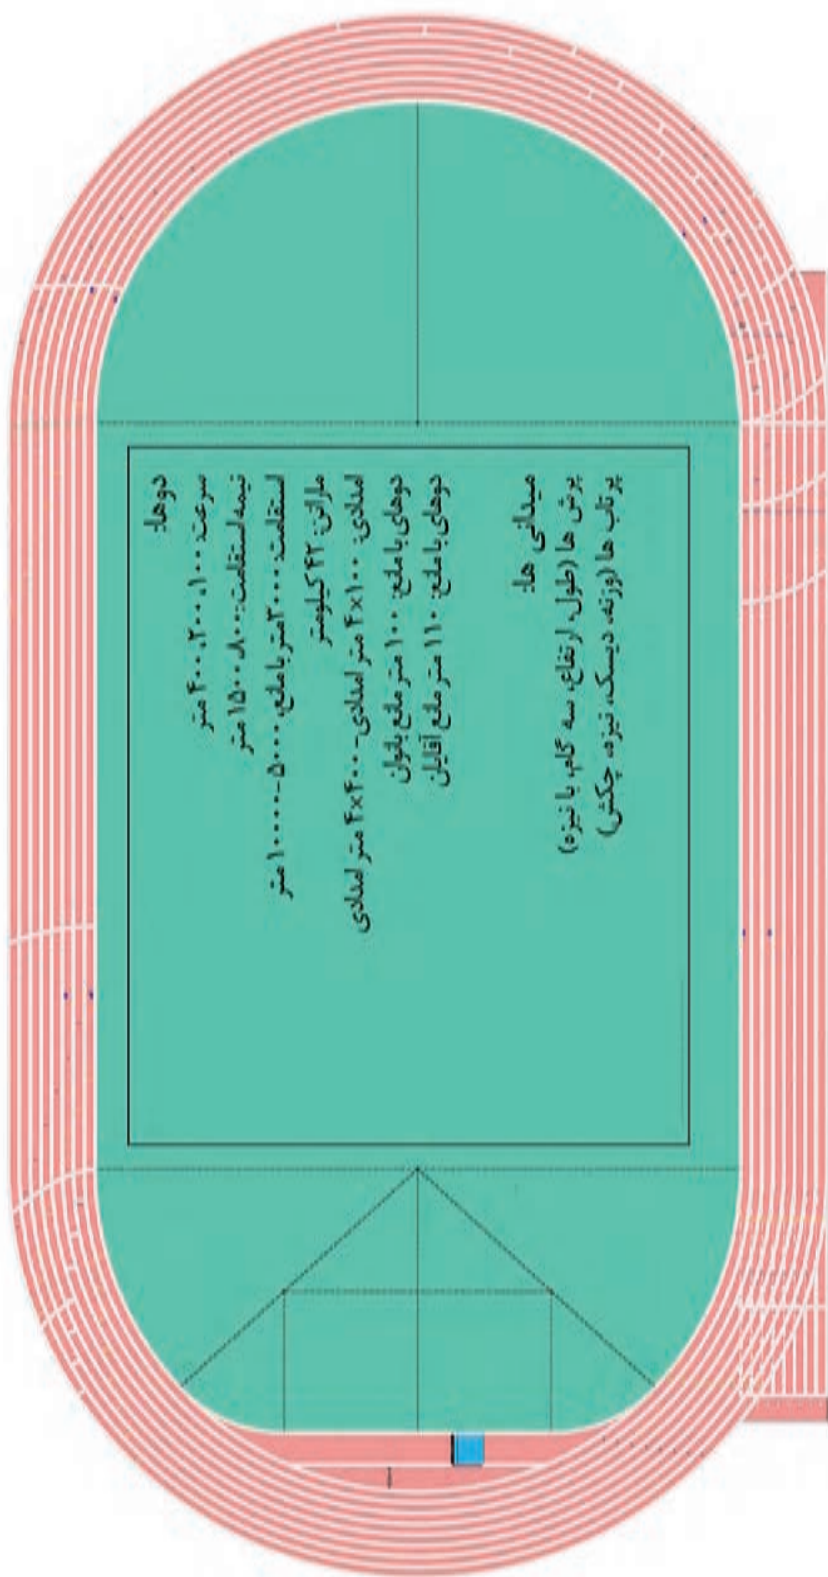 دوها:
سرعت: ۱۰۰، ۲۰۰، ۴۰۰ متر
نیمه استقامت: ۸۰۰، ۱۵۰۰ متر
استقامت: ۳۰۰۰ متر با مانع، ۵۰۰۰-۱۰۰۰۰ متر
ماراتن: ۴۲ کیلومتر
امدادی: ۴x۱۰۰ متر امدادی - ۴x۴۰۰ متر امدادی
دوهای با مانع: ۱۰۰ متر مانع بانوان
دوهای با مانع: ۱۱۰ متر مانع آقایان
میدانی ها:
پرش ها (طول، ارتفاع، سه گام، با نیزه)
پرتاب ها (وزنه، دیسک، نیزه، چکش)